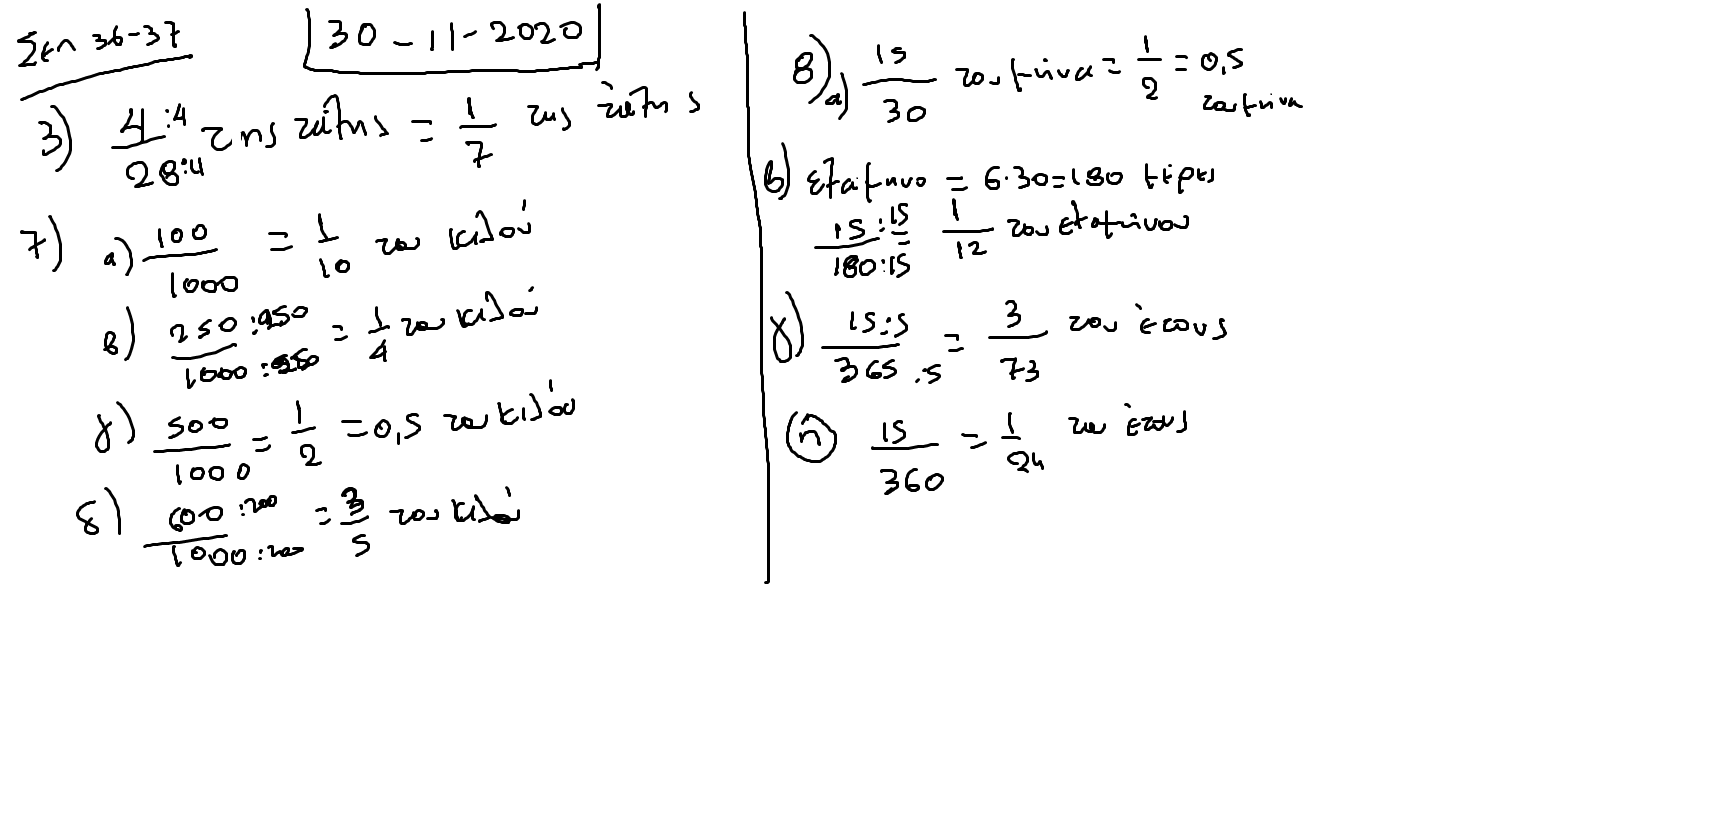 Σελ 36-37
30-11-2020
3) 4:4/28:4 της τάξης = 1/7 της τάξης
7) α) 100/1000 = 1/10 του κιλού
β) 250:250/1000:250 = 1/4 του κιλού
γ) 500/1000 = 1/2 = 0,5 του κιλού
δ) 600:200/1000:200 = 3/5 του κιλού
8) α) 15/30 του μήνα = 1/2 = 0,5 του μήνα
β) εξάμηνο = 6·30=180 μέρες
15:15/180:15 = 1/12 του εξαμήνου
γ) 15:5/365:5 = 3/73 του έτους
ή 15/360 = 1/24 του έτους